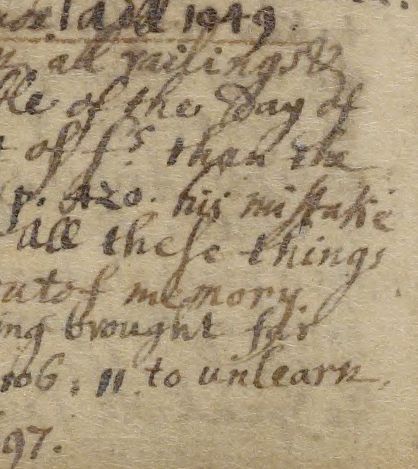 Add 1049.
all railings &
of the Day of
of fˢ than the
p. 420. his mistake
All these things
out of memory.
ing brought for
106, 11 to unlearn,
97.